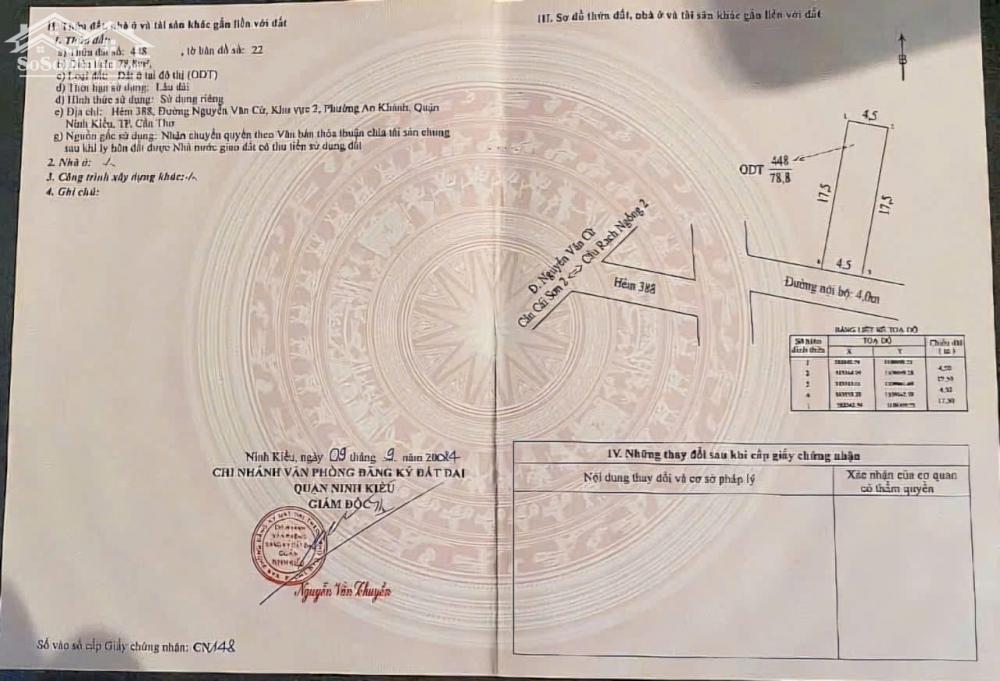 II. Thửa đất, nhà ở và tài sản khác gắn liền với đất
1. Thửa đất:
a) Thửa đất số: 448 , tờ bản đồ số: 22
b) Diện tích: 78,8m²,
c) Loại đất: Đất ở tại đô thị (ODT)
d) Thời hạn sử dụng: Lâu dài
đ) Hình thức sử dụng: Sử dụng riêng
e) Địa chỉ: Hẻm 388, Đường Nguyễn Văn Cừ, Khu vực 2, Phường An Khánh, Quận
Ninh Kiều, TP. Cần Thơ
g) Nguồn gốc sử dụng: Nhận chuyển quyền theo Văn bản thỏa thuận chia tài sản chung
sau khi ly hôn đất được Nhà nước giao đất có thu tiền sử dụng đất
2. Nhà ở: -/-
3. Công trình xây dựng khác:-/-
4. Ghi chú:
Ninh Kiều, ngày 09 tháng 9 năm
CHI NHÁNH VĂN PHÒNG ĐĂNG KÝ ĐẤT ĐAI
QUẬN NINH KIỀU
GIÁM ĐỐC
CHI NHÁNH
VĂN PHÒNG
ĐĂNG KÝ ĐẤT ĐAI
QUẬN
NINH KIỀU
Nguyễn Văn Thuyền
Số vào sổ cấp Giấy chứng nhận: CN148
III. Sơ đồ thửa đất, nhà ở và tài sản khác gắn liền với đất
B
1
4,5
ODT 448
78,8
17,5
17,5
4,5
4
3
Đường nội bộ: 4,0m
Hẻm 388
Đ. Nguyễn Văn Cừ
Cần Cái Sơn 2 <=> Cầu Rạch Ngỗng 2
BẢNG LIỆT KÊ TOẠ ĐỘ
Số hiệu đỉnh thửa
TOẠ ĐỘ
X Y
Chiều dài ( m )
1
2
3
4
1
4,50
17,50
4,50
17,50
IV. Những thay đổi sau khi cấp giấy chứng nhận
Nội dung thay đổi và cơ sở pháp lý
Xác nhận của cơ quan
có thẩm quyền